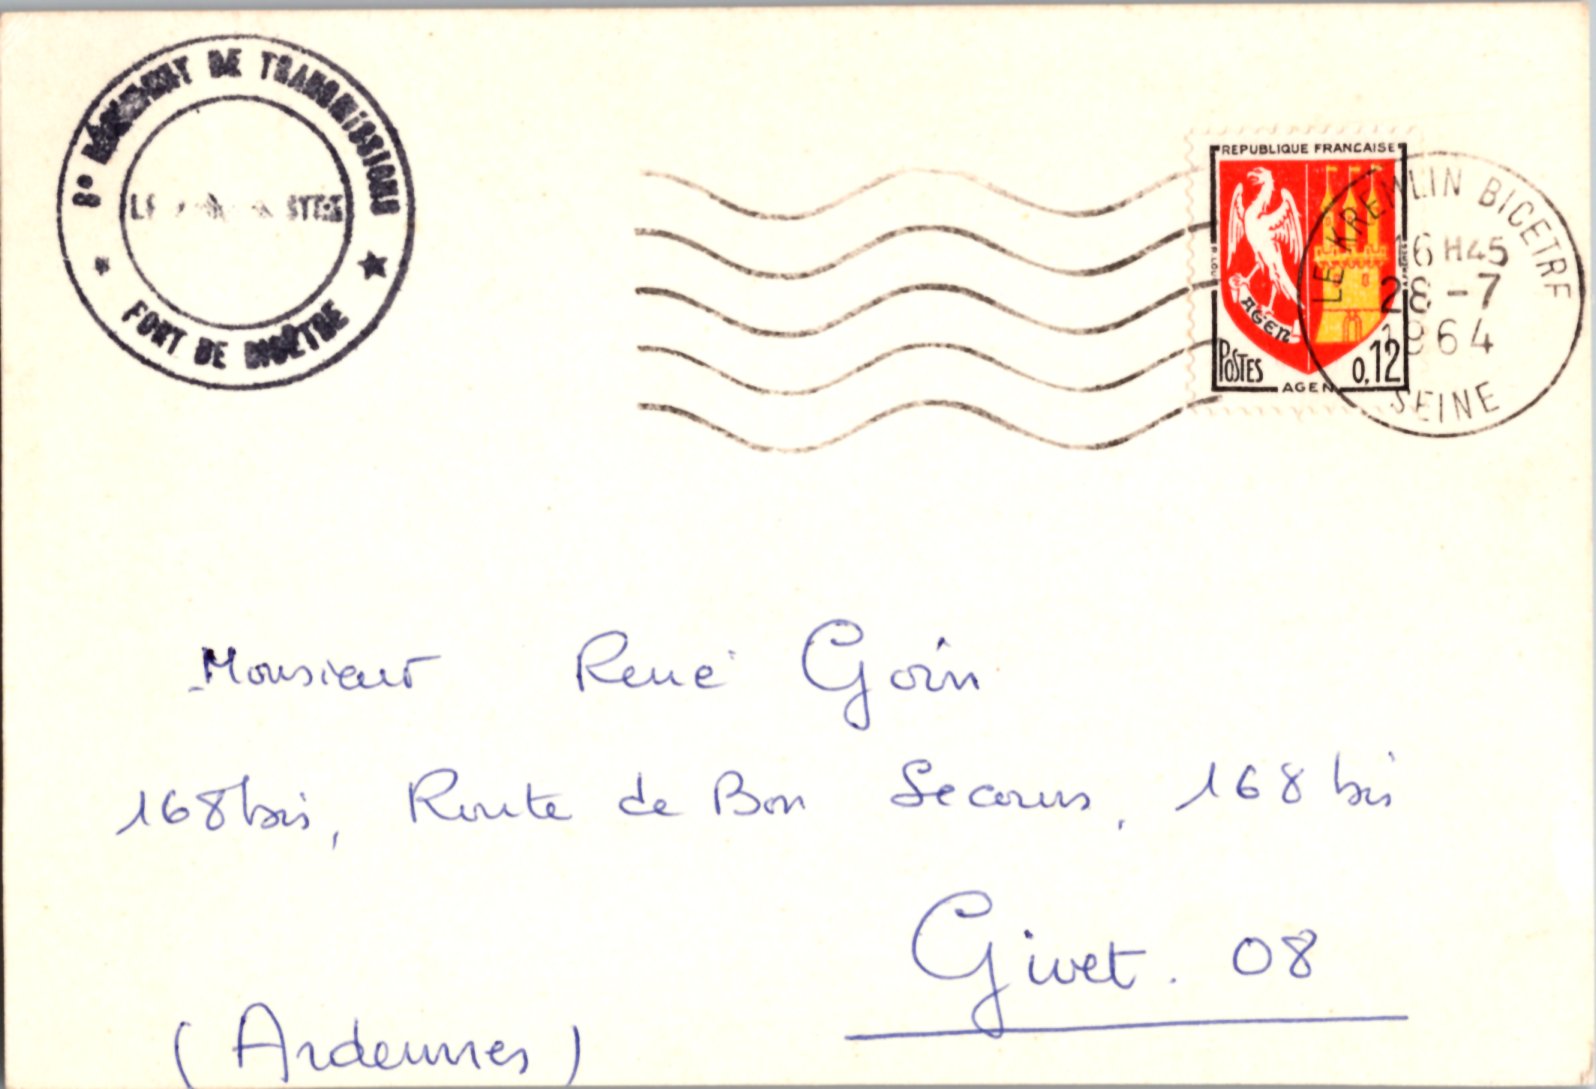 8e RÉGIMENT DE TRANSMISSIONS
FORT DE BICÊTRE
REPUBLIQUE FRANCAISE
AGEN
POSTES
0,12
AGEN
LE KREMLIN BICETRE
16 H45
28 - 7
1964
SEINE
Monsieur René Goin
168 bis, Route de Bon Secours, 168 bis
Givet. 08
(Ardennes)